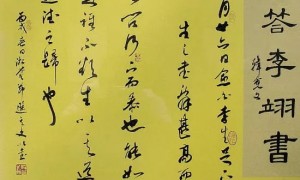 答李翊書
韓愈文
月廿六日愈白李生足下
生之書辭甚高而
問何下而恭也能如
是誰不欲告生以其道
道德之歸也